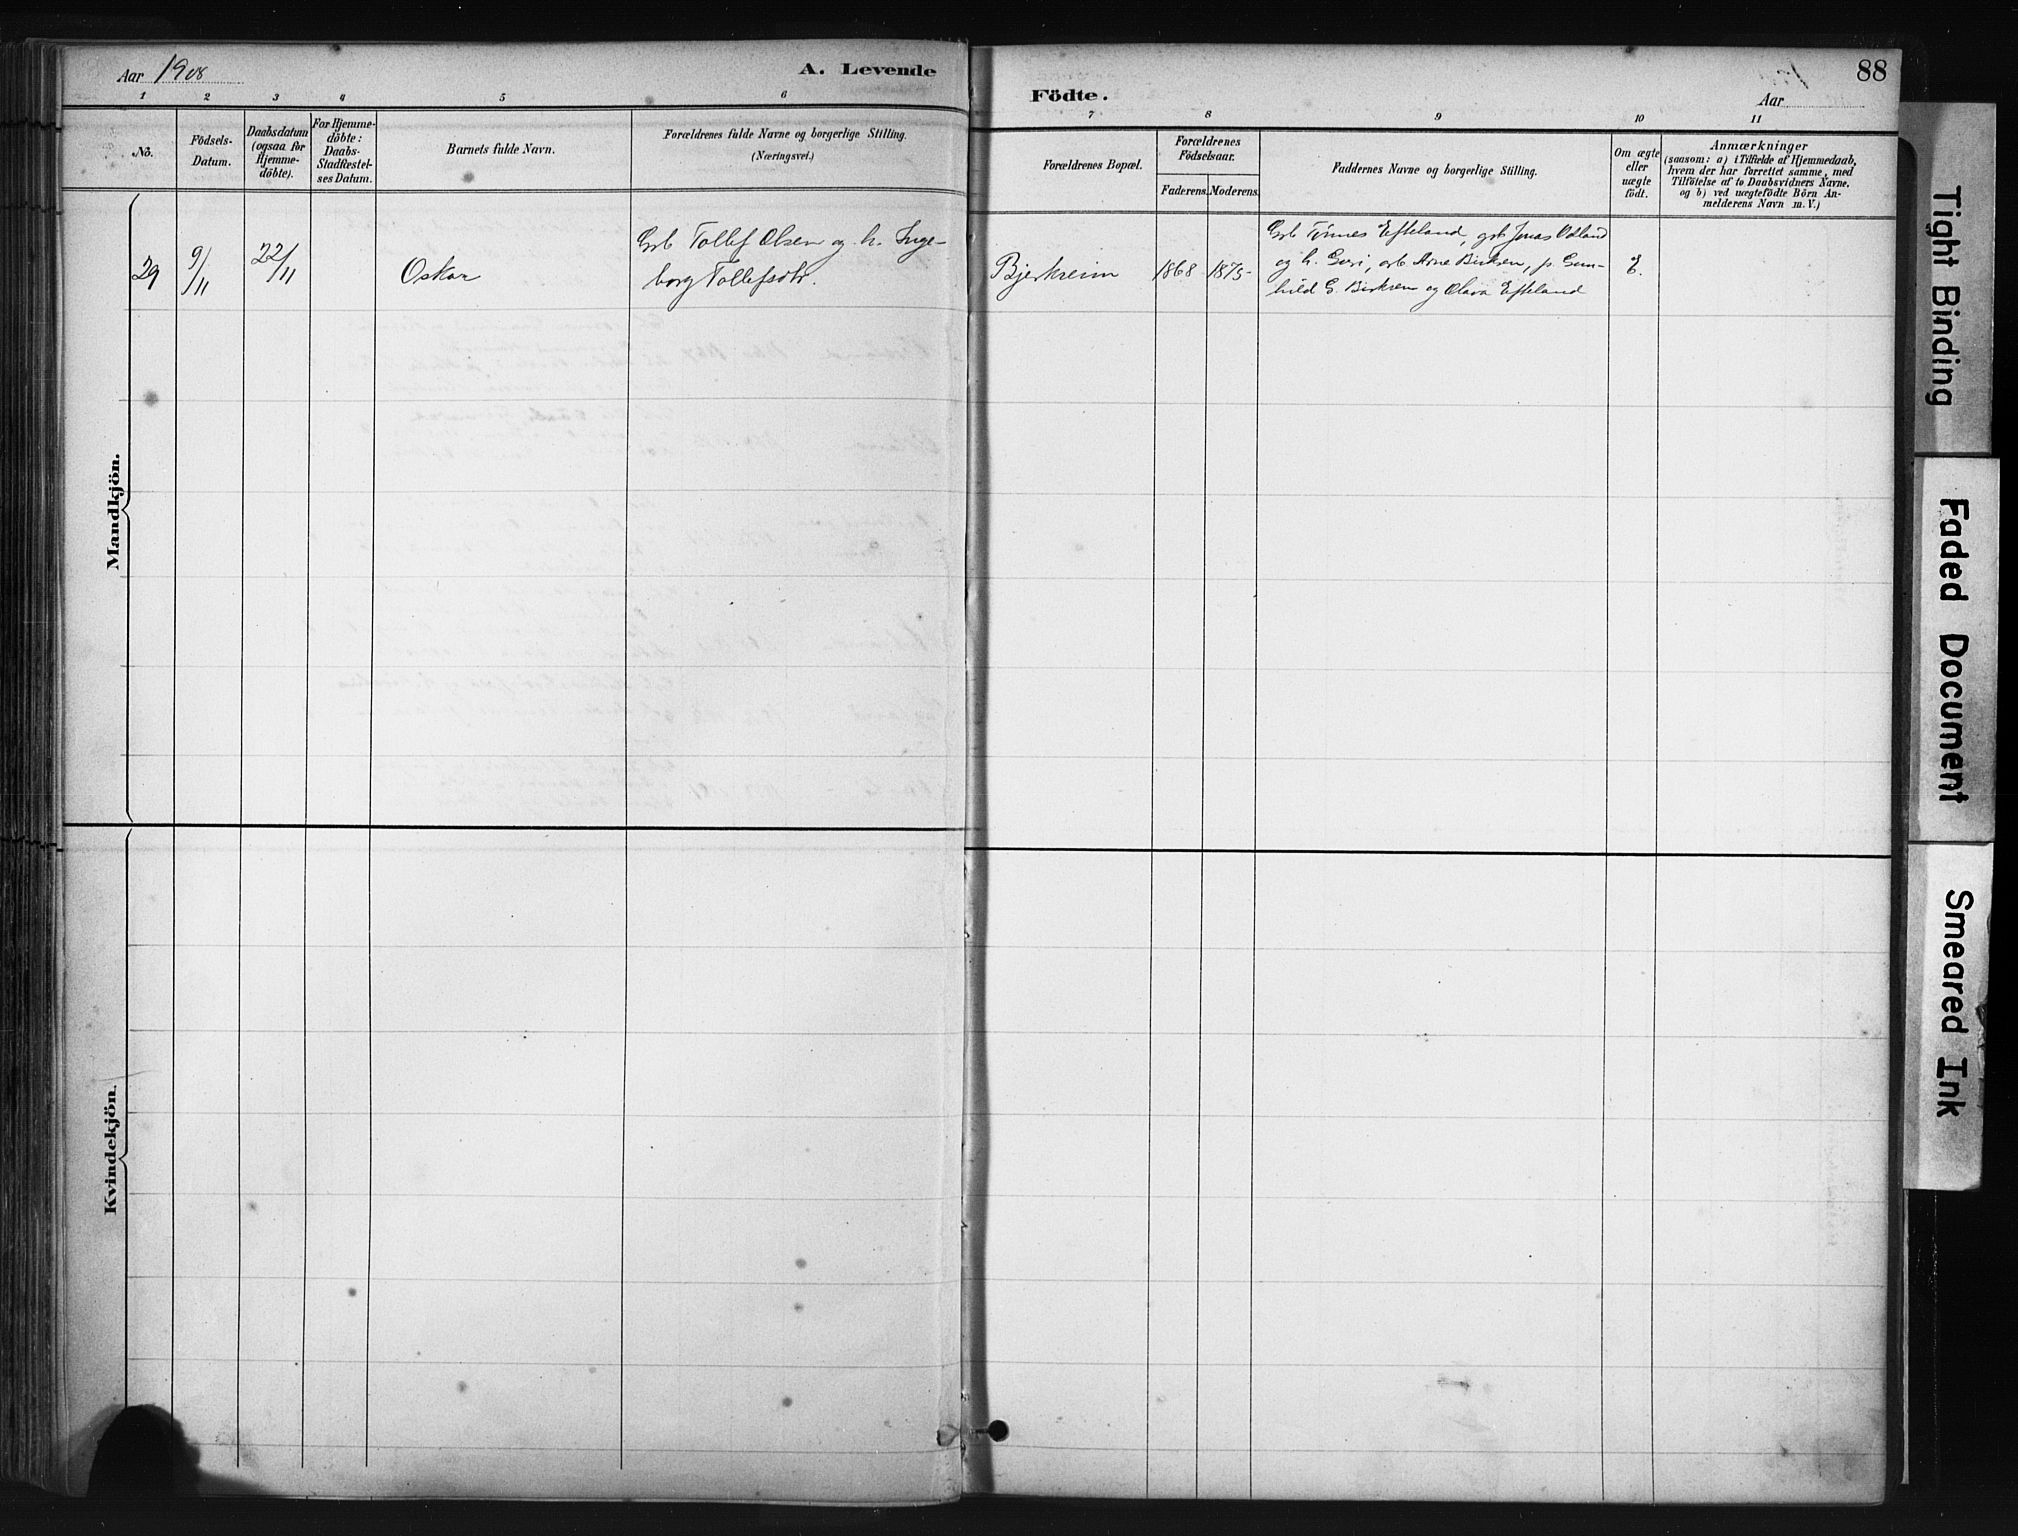 Aar 1908
A. Levende
Födte.
Aar
88
1 2 3 4 5 6 7 8 9 10 11
No.
Födsels-
Datum.
Daabsdatum
(ogsaa for
Hjemme-
döbte).
For Hjemme-
döbte:
Daabs-
Stadfæstel-
ses Datum.
Barnets fulde Navn.
Forældrenes fulde Navne og borgerlige Stilling.
(Næringsvei.)
Forældrenes Bopæl.
Forældrenes
Födselsaar.
Faderens. Moderens.
Faddernes Navne og borgerlige Stilling.
Om ægte
eller
uægte
födt.
Anmærkninger
(saasom: a) i Tilfælde af Hjemmedaab,
hvem der har forrettet samme, med
Tilföielse af to Daabsvidners Navne,
og b) ved uægtefödte Börn An-
melderens Navn m. V.)
Mandkjön.
29
9/11
22/11
Oskar
Grb Tollef Olsen og h. Inge-
borg Tollefsdtr.
Bjerkreim
1868
1875
Grb Tønnes Efteland, grb Jonas Odland
og h. Guri, arb Arne Birksen, p. Gun-
hild G. Birksen og Olava Efteland
E.
Kvindekjön.
Tight Binding
Faded Document
Smeared Ink